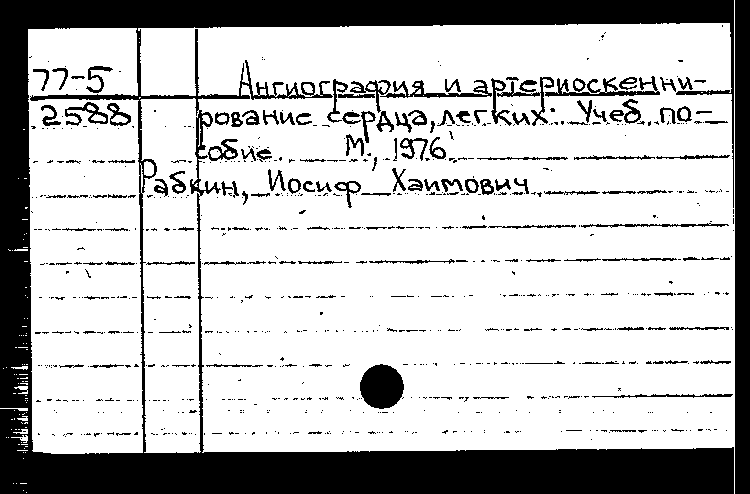 77-5 Ангиография и артериоскенни-
2588 рование сердца, легких: Учеб. по-
собие. М., 1976.
Рабкин, Иосиф Хаимович.